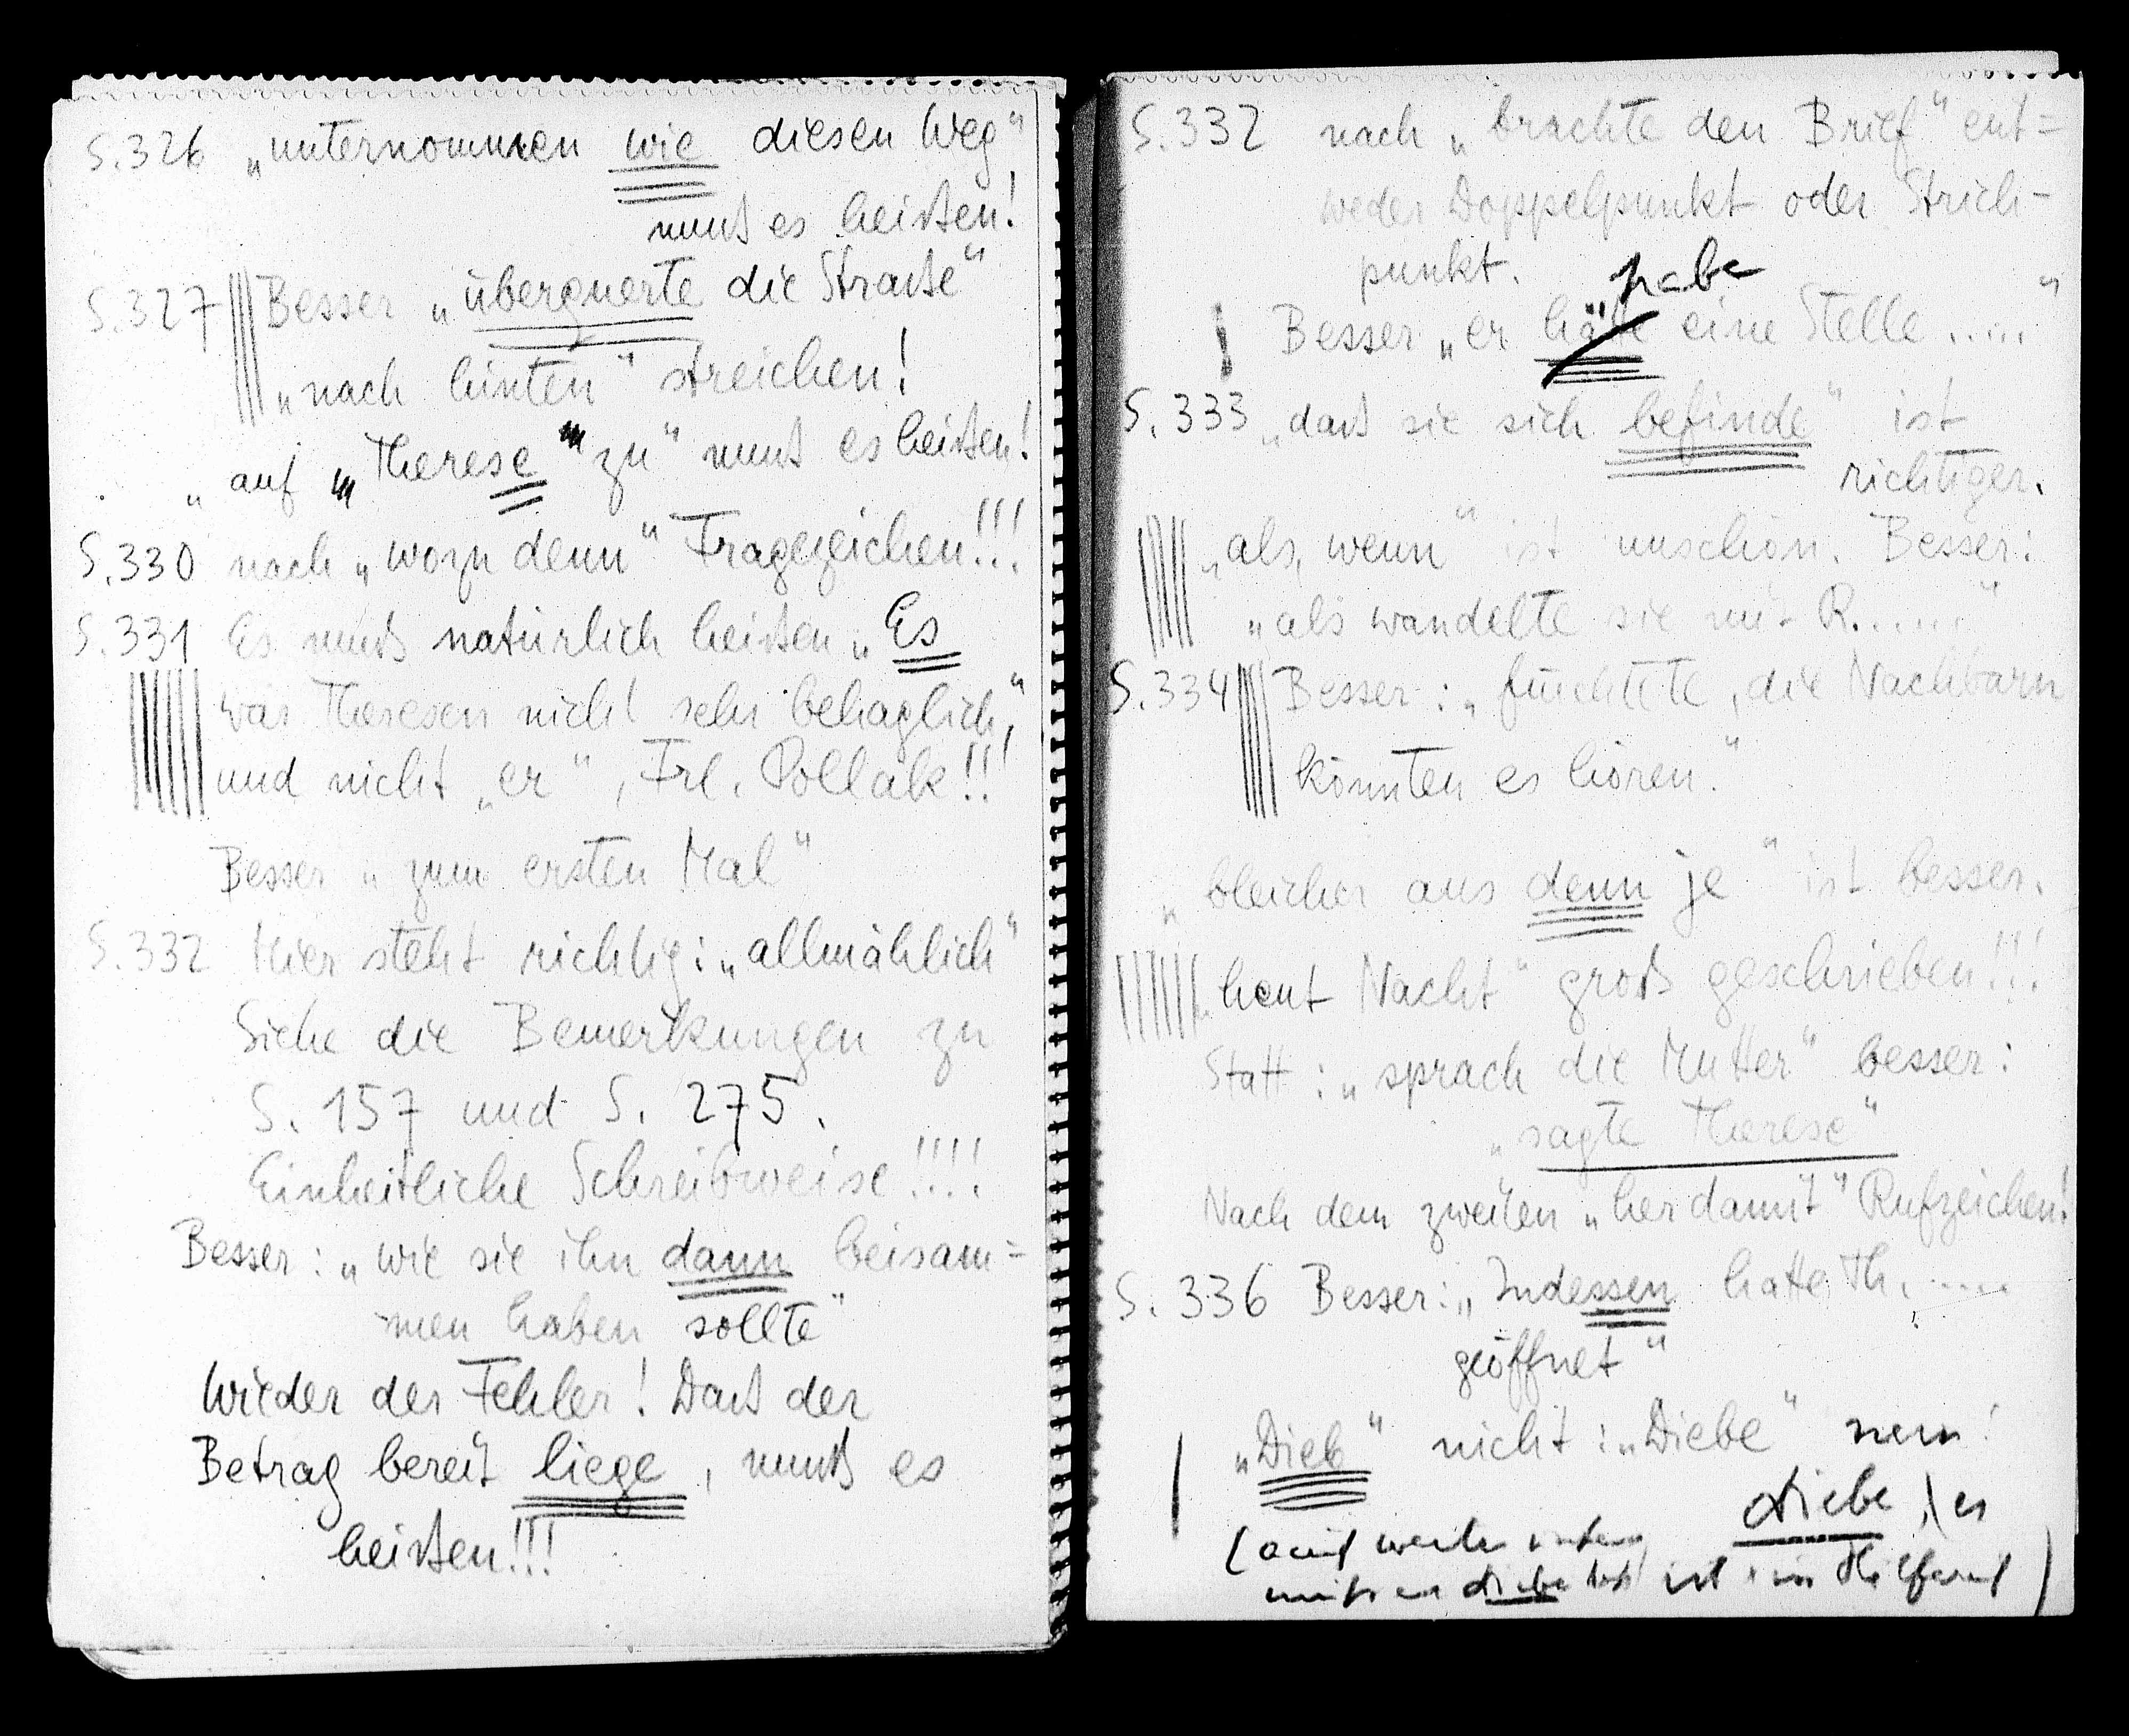 S. 326 „unternommen wie diesen Weg“
muß es heißen!
S. 327 Besser „überquerte die Straße“
„nach hinten“ streichen!
„auf Therese zu“ muß es heißen!
S. 330 nach „wozu denn“ Fragezeichen!!!
S. 331 Es muß natürlich heißen „Es
war Theresen nicht sehr behaglich,“
und nicht „er“, Frl. Pollak!!!
Besser „zum ersten Mal“
S. 332 Hier steht richtig: „allmählich“
Siehe die Bemerkungen zu
S. 157 und S. 275.
Einheitliche Schreibweise!!!!
Besser: „wie sie ihn dann beisam=
men haben sollte“
Wieder der Fehler! Daß der
Betrag bereit liege, muß es
heißen!!!
S. 332 nach „brachte den Brief“ ent=
weder Doppelpunkt oder Strich-
punkt.
habe
Besser „er hätte eine Stelle .....“
S. 333 „daß sie sich befinde“ ist
richtiger.
„als, wenn“ ist unschön. Besser:
„als wandelte sie mit R......“
S. 334 Besser: „fürchtete, die Nachbarn
könnten es hören.“
„bleicher aus denn je“ ist besser.
„heut Nacht“ groß geschrieben!!!
Statt: „sprach die Mutter“ besser:
„sagte Therese“
Nach dem zweiten „her damit“ Rufzeichen!
S. 336 Besser: „Indessen hatte Th. .....
geöffnet“
„Dieb“ nicht: „Diebe“ nein!
Diebe, es
(auch weiter unten
ist ein Hilferuf)